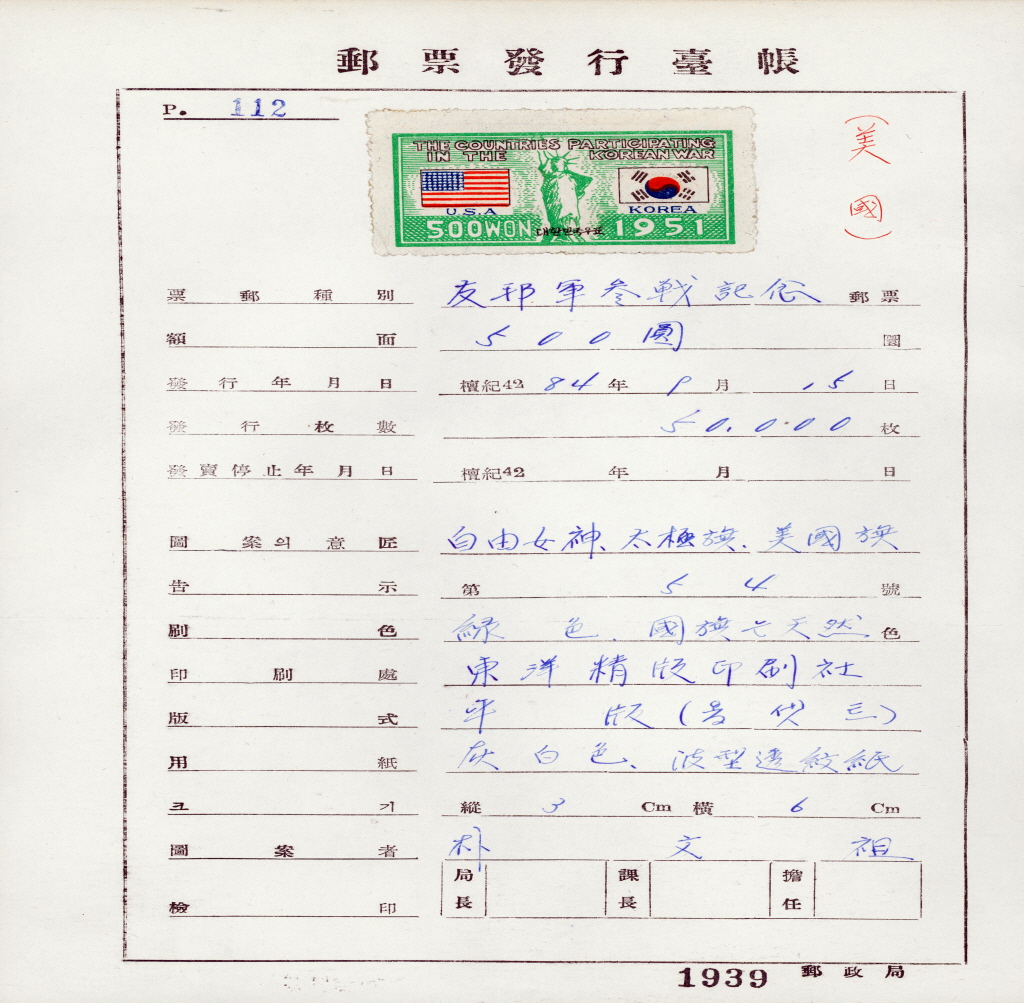 郵票發行臺帳
P. 112
(美國)
THE COUNTRIES PARTICIPATING
IN THE KOREAN WAR
U.S.A KOREA
500WON 대한민국우표 1951
票郵種別 友邦軍參戰記念 郵票
額面 500圓 圜
發行年月日 檀紀42 84年 9月 15日
發行枚數 50.000枚
發賣停止年月日 檀紀42 年 月 日
圖案의意匠 自由女神、太極旗、美國旗
告示 第 54 號
刷色 綠色、國旗 天然色
印刷處 東洋精版印刷社
版式 平版
用紙 灰白色、波型透紋紙
크기 縱 3 Cm 橫 6 Cm
圖案者 朴文祖
檢印 局長 課長 擔任
1939 郵政局